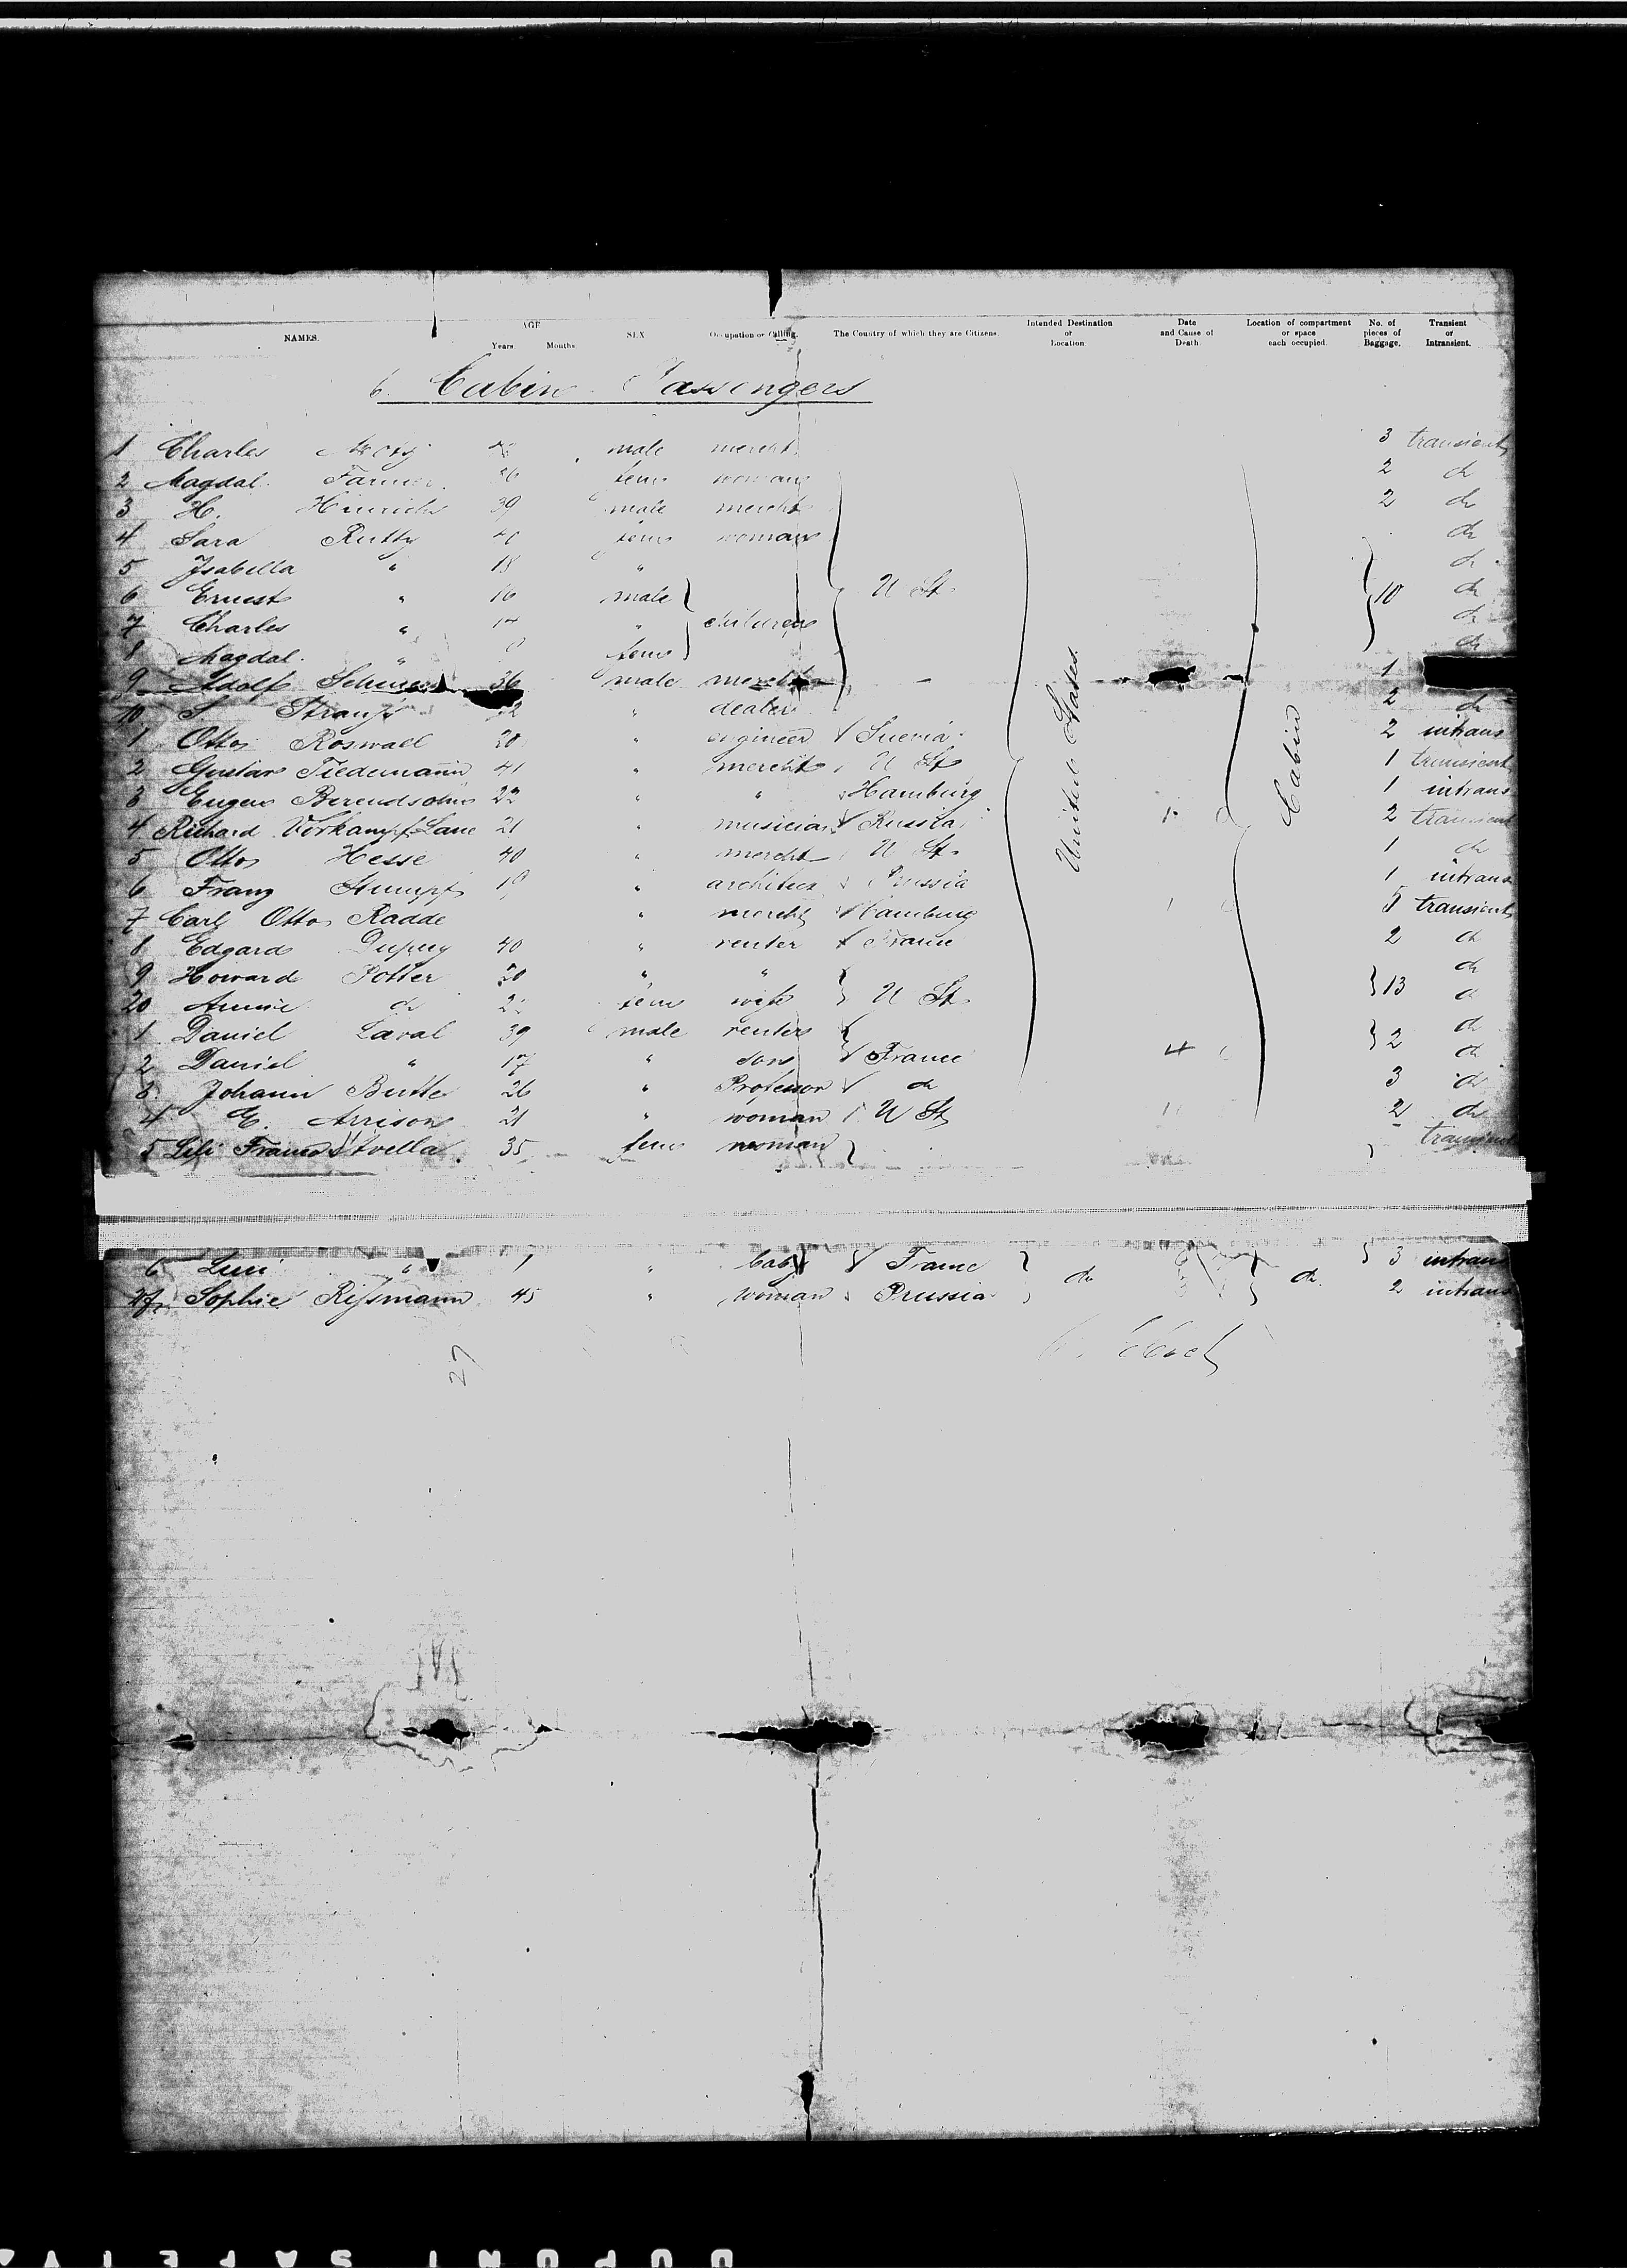 NAMES. AGE Years. Months. SEX Occupation or Calling. The Country of which they are Citizens. Intended Destination or Location. Date and Cause of Death. Location of compartment or space each occupied. No. of pieces of Baggage. Transient or Intransient.
b. Cabin Passengers
1 Charles male mercht 3 transient
2 Magdal. Farmer 26 fem woman 2 do
3 H. Hinrichs 39 male mercht 2 do
4 Sara Rutty 40 fem woman do
5 Isabella " 18 " do
6 Ernest " 16 male U St. 10 do
7 Charles " 14 " children do
8 Magdal. " fem do
9 Adolf 36 male mercht 1
10 S. Strauss dealer 2 do
1 Otto Roswall 20 " engineer Suevia 2 intrans
2 Gustav Tiedemann 41 " mercht U St 1 transient
3 Eugen Berendsohn 22 " " Hamburg 1 intrans
4 Richard Vorkampf-Laue 21 " musician Russia 2 transient
5 Otto Hesse 40 " mercht U St. 1 do
6 Franz Stumpf 19 " architect Prussia 1 intrans
7 Carl Otto Radde " mercht Hamburg 5 transient
8 Edgard Dupuy 40 " renter France 2 do
9 Howard Potter " " do
20 Annie do fem wife U St. 13 do
1 Daniel Laval 39 male renter 2 do
2 Daniel " 17 " son France do
3 Johann Butte 26 " Professor do 3 do
4 E. Arrison 21 " woman U St 2 do
5 Lili 35 fem woman transient
United States.
Cabin
6 " 1 " baby France do do. 3 intrans
27 Sophie Rissmann 45 " woman Prussia 2 intrans
27